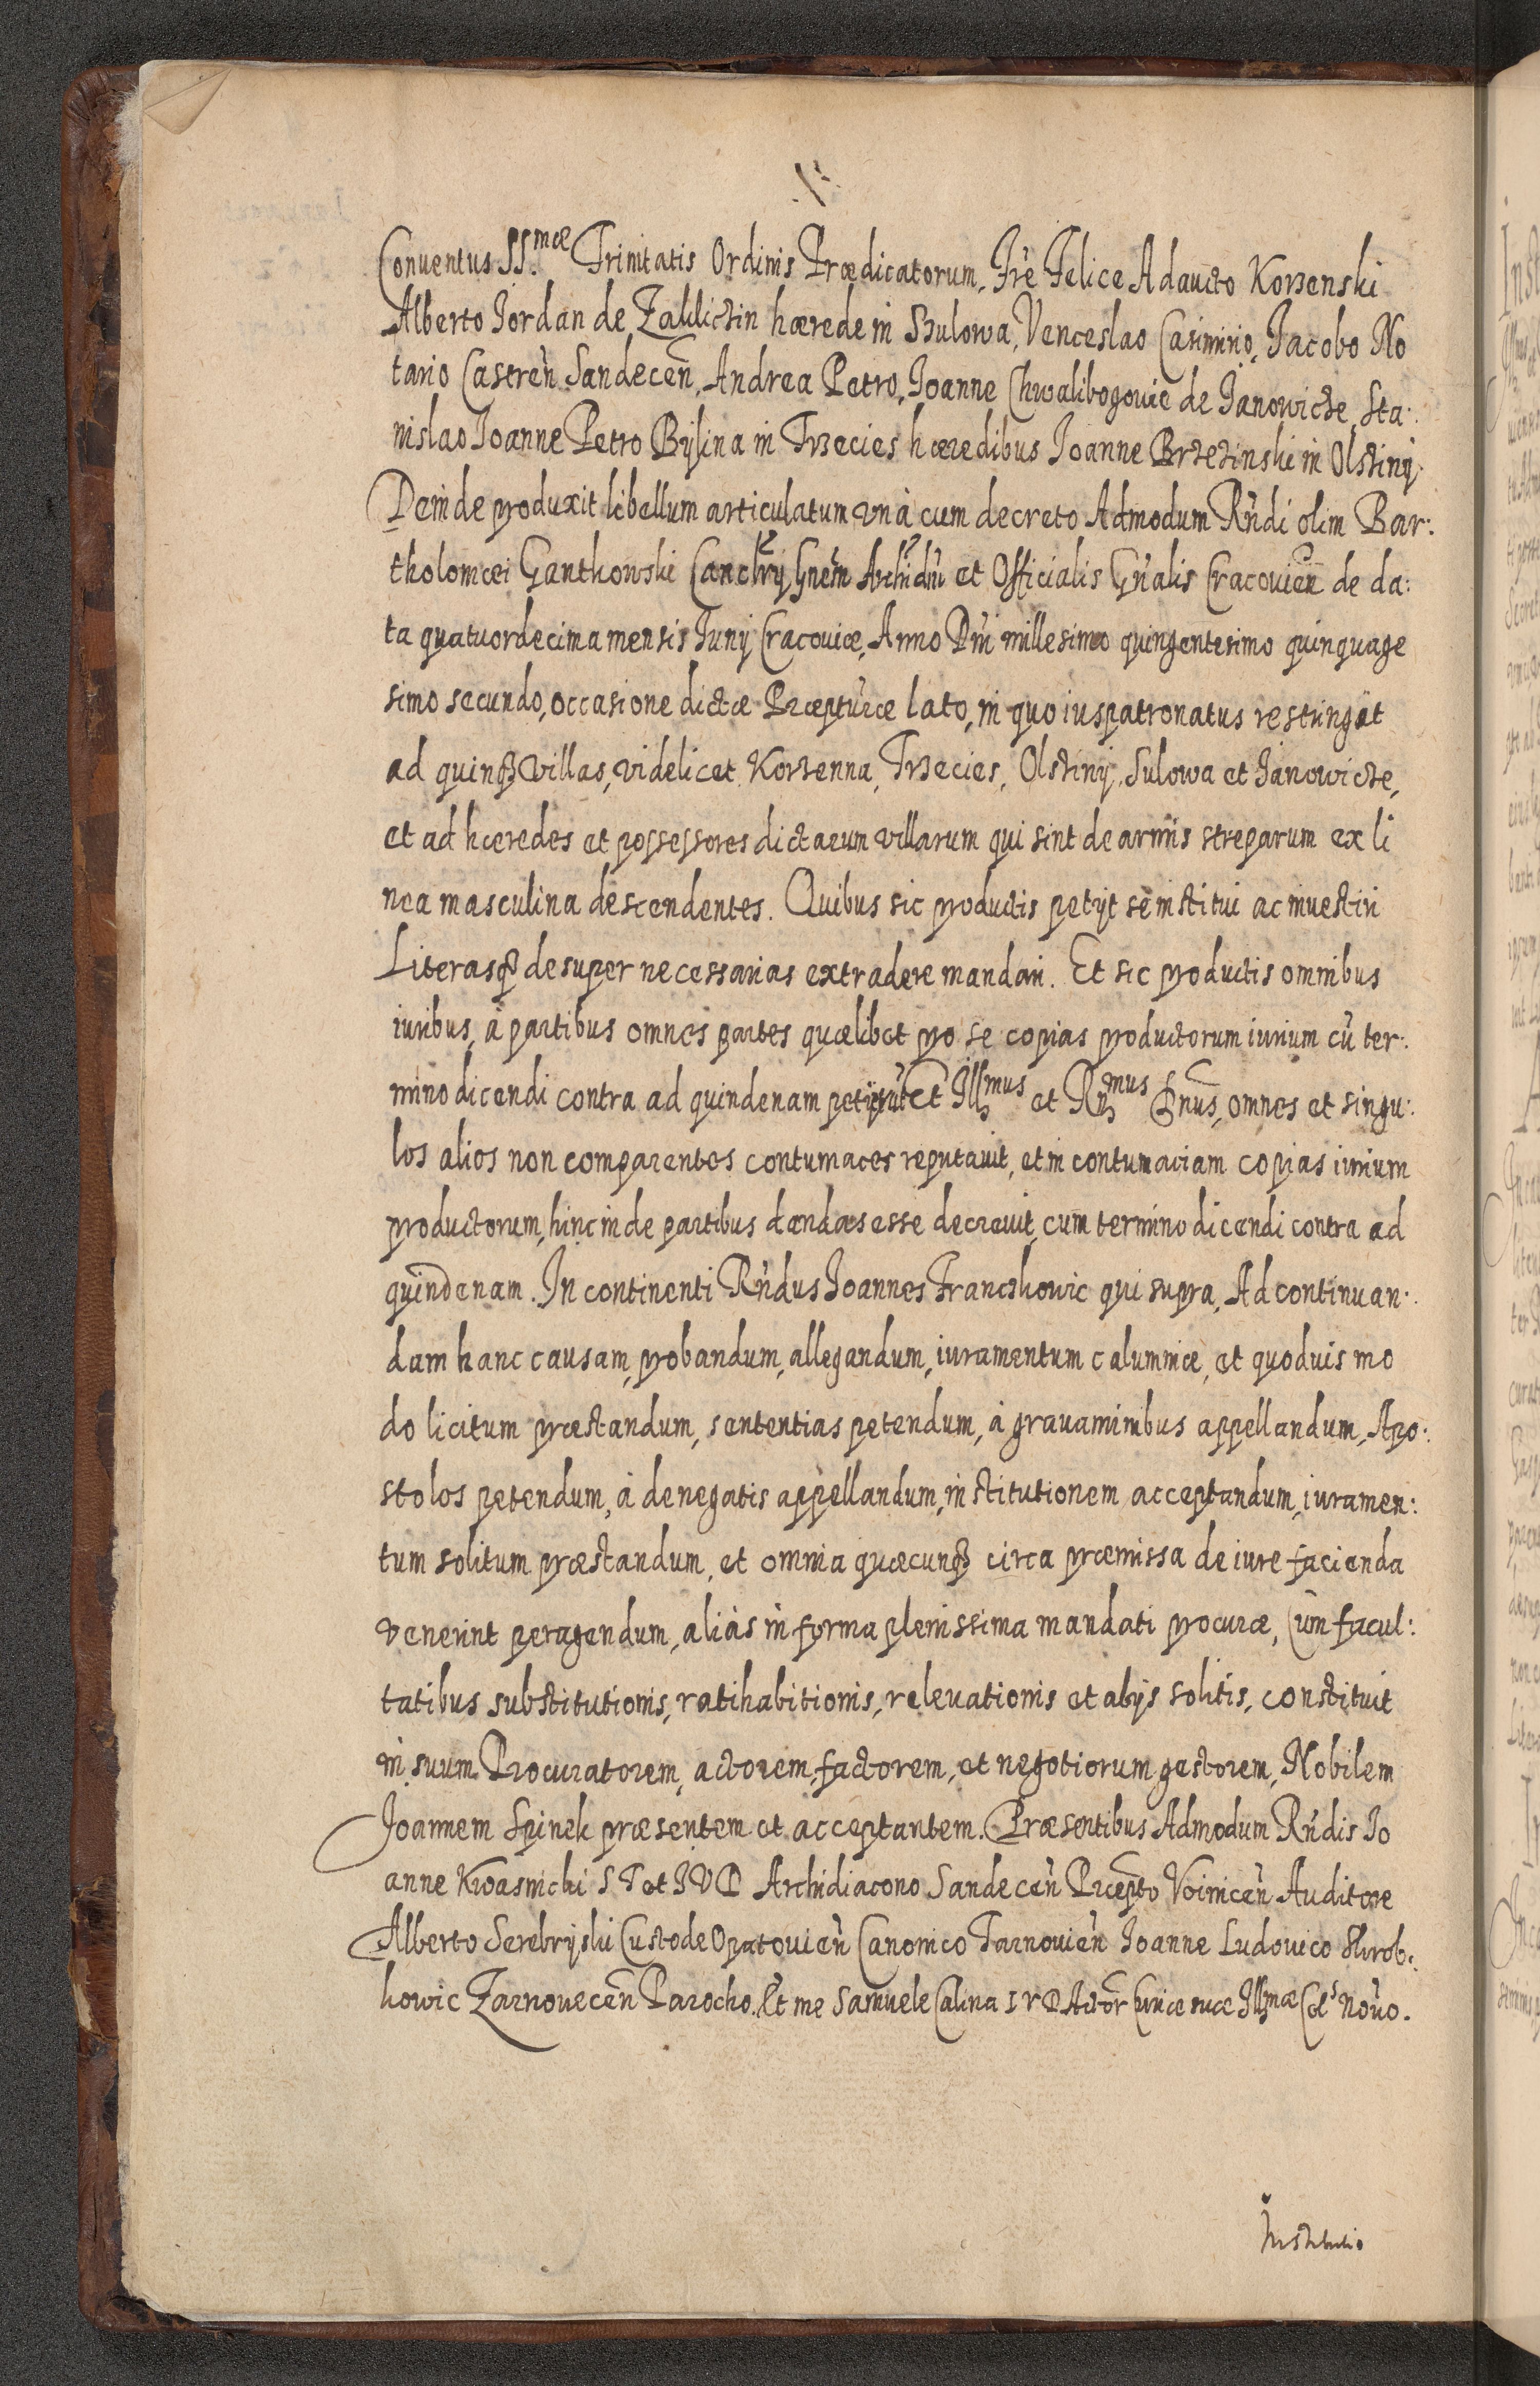 Conuentus SS.mæ Trinitatis Ordinis Prædicatorum, Frē Felice Adaucto Korzenski
Alberto Jordan de Zakliczin hærede in Szulowa, Venceslao Casimirio, Jacobo No
tario Castreñ Sandeceñ, Andrea Petro, Joanne Chwalibogouie de Janowicze, Sta:
nislao Joanne Petro Bylina in Trzecies hæredibus Joanne Brzezinski in Olsziny.
Deinde produxit libellum articulatum vnà cum decreto Admodum Rñdi olim Bar:
tholomæi Ganthowski Canclrÿ Gnem Archidni et Officialis Gñalis Cracouieñ de da:
ta quatuordecima mensis Junij Cracouiæ, Anno Dñi millesimo quingentesimo quinquage
simo secundo, occasione dictæ Præpturæ lato, in quo iuspatronatus restringat
ad quinq3 villas, videlicet Korzenna, Trzecies, Olsziny, Sulowa et Janowicze,
et ad hæredes et possessores dictarum villarum qui sint de armis streparum ex li
nea masculina descendentes. Quibus sic productis petijt se institui ac inuestiri
Literasq3 desuper necessarias extradere mandari. Et sic productis omnibus
iuribus, à partibus omnes partes quælibet pro se copias productorum iurium cū ter:
mino dicendi contra ad quindenam petijerūt Et Ill3mus et Rn3mus Dnus, omnes et singu:
los alios non comparentes contumaces reputauit, et in contumaciam copias iurium
productorum, hinc inde partibus dandas esse decreuit, cum termino dicendi contra ad
quindenam. In continenti Rñdus Joannes Franczkowic qui supra, Ad continuan:
dam hanc causam, probandum, allegandum, iuramentum calumniæ, et quoduis mo
do licitum præstandum, sententias petendum, à grauaminibus appellandum, Apo:
stolos petendum, à denegatis appellandum, institutionem acceptandum, iuramen:
tum solitum præstandum, et omnia quæcunq3 circa præmissa de iure facienda
venerint peragendum, aliàs in forma plenissima mandati procuræ, Cum facul:
tatibus substitutionis, ratihabitionis, releuationis et alijs solitis, constituit
in suum Procuratorem, actorem, factorem, et negotiorum gestorem, Nobilem
Joannem Spinek præsentem et acceptantem. Præsentibus Admodum Rñdis Jo
anne Kwasnicki S T et J V D Archidiacono Sandeceñ Præpto Voiniceñ Auditore
Alberto Serebryski Custode Opatouieñ Canonico Tarnouieñ Joanne Ludouico Skrob:
kowic Zarnoueceñ Parocho. Et me Samuele Calina I V D Actor Curiæ suæ Ill3mæ Cels Noūo.
Institutio